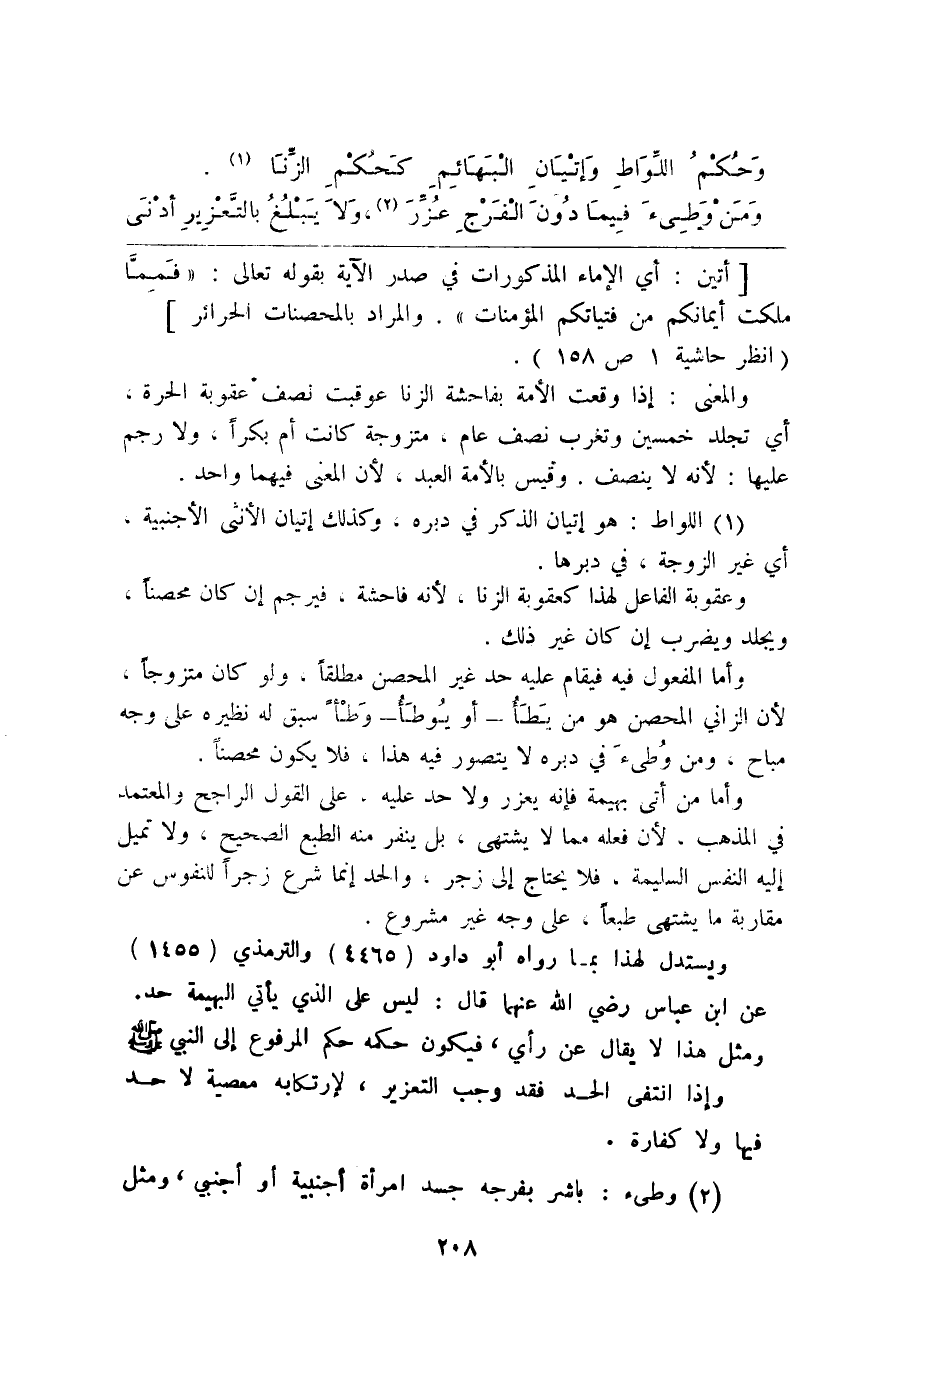 وَحُكْمُ اللِّوَاطِ وَإِتْيَانِ الْبَهَائِمِ كَحُكْمِ الزِّنَا (١) .
وَمَنْ وَطِىءَ فِيمَا دُونَ الْفَرْجِ عُزِّرَ (٢)، وَلاَ يَبْلُغُ بالتَّعْزِيرِ أدْنَى
[ أتين : أي الإماء المذكورات في صدر الآية بقوله تعالى : « فَمِمَّا
ملكت أيمانكم من فتياتكم المؤمنات » . والمراد بالمحصنات الحرائر ]
( انظر حاشية ١ ص ١٥٨ ) .
والمعنى : إذا وقعت الأمة بفاحشة الزنا عوقبت نصف عقوبة الحرة ،
أي تجلد خمسين وتغرب نصف عام ، متزوجة كانت أم بكراً ، ولا رجم
عليها : لأنه لا ينصف . وقيس بالأمة العبد ، لأن المعنى فيهما واحد .
(١) اللواط : هو إتيان الذكر في دبره ، وكذلك إتيان الأنثى الأجنبية ،
أي غير الزوجة ، في دبرها .
وعقوبة الفاعل لهذا كعقوبة الزنا ، لأنه فاحشة ، فيرجم إن كان محصناً ،
ويجلد ويضرب إن كان غير ذلك .
وأما المفعول فيه فيقام عليه حد غير المحصن مطلقاً ، ولو كان متزوجاً ،
لأن الزاني المحصن هو من يَطَأُ - أو يُوطَأُ- وَطْأً سبق له نظيره على وجه
مباح ، ومن وُطىءَ في دبره لا يتصور فيه هذا ، فلا يكون محصناً .
وأما من أتى بهيمة فإنه يعزر ولا حد عليه . على القول الراجح والمعتمد
في المذهب . لأن فعله مما لا يشتهى ، بل ينفر منه الطبع الصحيح ، ولا تميل
إليه النفس السليمة . فلا يحتاج إلى زجر ، والحد إنما شرع زجراً للنفوس عن
مقاربة ما يشتهى طبعاً ، على وجه غير مشروع .
ويستدل لهذا بما رواه أبو داود ( ٤٤٦٥ ) والترمذي ( ١٤٥٥ )
عن ابن عباس رضي الله عنهما قال : ليس على الذي يأتي البهيمة حد.
ومثل هذا لا يقال عن رأي ، فيكون حكمه حكم المرفوع إلى النبي ﷺ
وإذا انتفى الحد فقد وجب التعزير ، لإرتكابه معصية لا حد
فيها ولا كفارة .
(٢) وطىء : باشر بفرجه جسد امرأة أجنبية أو أجنبي ، ومثل
٢٠٨